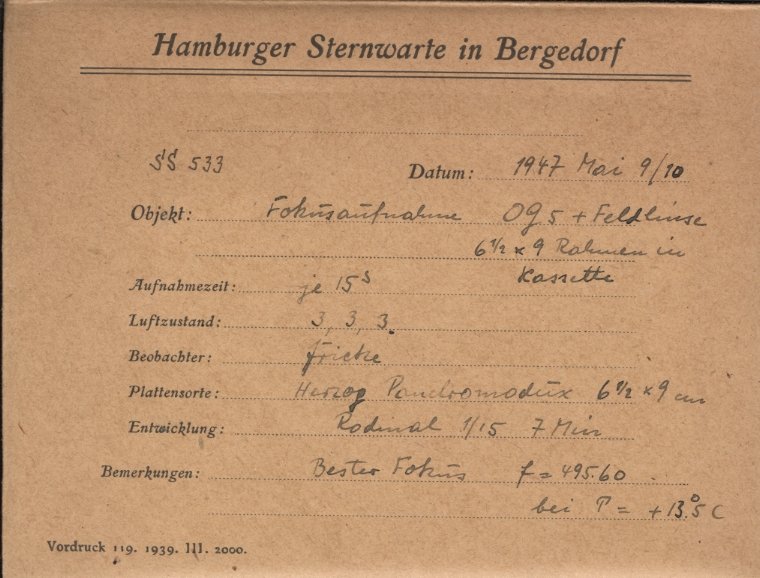 Hamburger Sternwarte in Bergedorf
SS 533
Datum: 1947 Mai 9/10
Objekt: Fokusaufnahme OG 5 + Feldlinse
6 1/2 x 9 Rahmen in
Kassette
Aufnahmezeit: je 15s
Luftzustand: 3, 3, 3.
Beobachter: Fricke
Plattensorte: Herzog 6 1/2 x 9 cm
Entwicklung: Rodinal 1/15 7 Min
Bemerkungen: Bester Fokus f = 495.60
bei T = +13°.5 C
Vordruck 119. 1939. III. 2000.